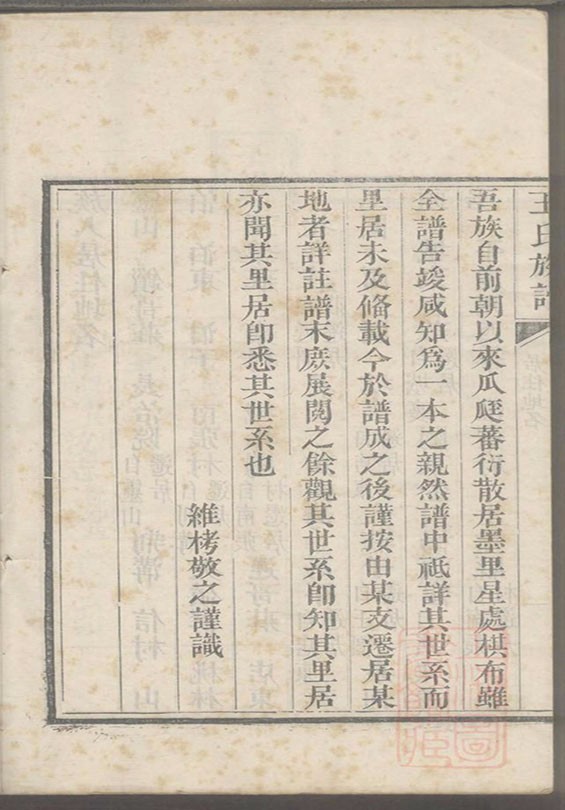 王氏族譜
吾族自前朝以來瓜瓞蕃衍散居墨里星處棋布雖
全譜告竣咸知為一本之親然譜中祗詳其世系而
里居未及備載今於譜成之後謹按由某支遷居某
地者詳註譜末庶展閱之餘觀其世系卽知其里居
亦聞其里居卽悉其世系也
維栲敬之謹識